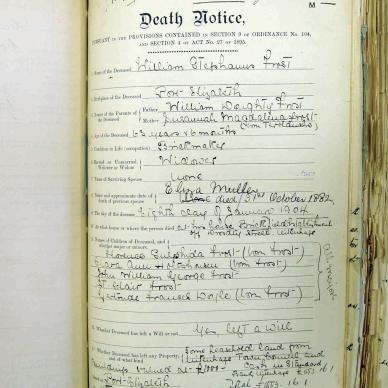 M
Death Notice,
PURSUANT TO THE PROVISIONS CONTAINED IN SECTION 9 OF ORDINANCE No. 104,
AND SECTION 4 OF ACT No. 27 OF 1895.
Name of the Deceased William Stephanus Frost
Birthplace of the Deceased Port Elizabeth
Names of the Parents of the Deceased
Father William Doughty Frost
Mother Susannah Magdalena Frost
Age of the Deceased 63 years & 6 months
Condition in Life (occupation) Brickmaker
Married or Unmarried, Widower or Widow Widower
Name of Surviving Spouse None
Name and approximate date of death of previous spouse
died 31st October 1882
The day of the decease Eighth day of January 1904
At what house or where the person died at his house
Street Uitenhage
Names of Children of Deceased, and whether major or minor
Florence Euphilda (born Frost)
Clara Ann (born Frost)
John William George Frost
St. Clair Frost
Gertrude Frances (born Frost)
all majors
Whether Deceased has left a Will or not Yes, left a will
Whether Deceased has left any Property, and of what kind
Some landed land from
Uitenhage Town Council and
Buildings valued at £1000
Cash in Standard
Bank Uitenhage £553.16.1
Port Elizabeth
Total £1553.16.1